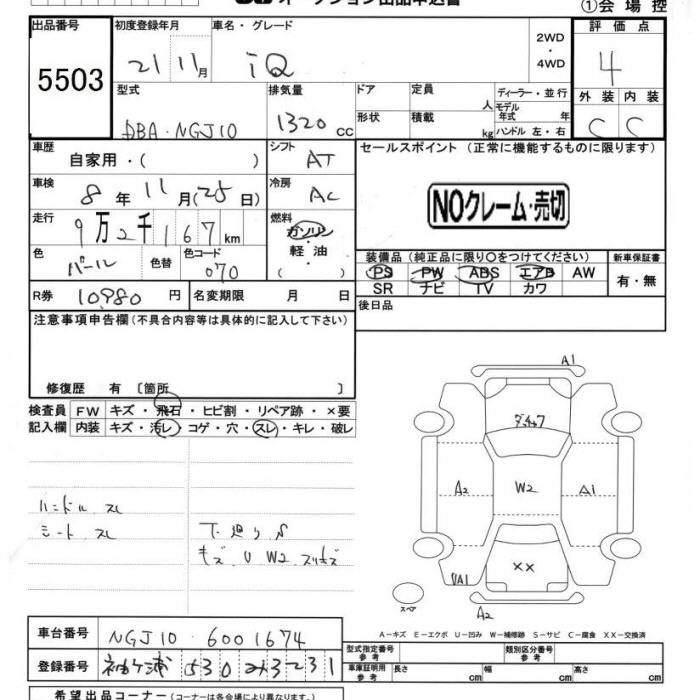 オークション出品申込書
①会場控
出品番号 5503
初度登録年月 21 11月
車名・グレード iQ
2WD
・
4WD
評価点 4
外装 C 内装 C
型式 DBA・NGJ10
排気量 1320 CC
ドア
形状
定員 人
積載 kg
ディーラー・並行
モデル
年式 年
ハンドル 左・右
車歴 自家用・( )
シフト AT
セールスポイント(正常に機能するものに限ります)
車検 8年11月(25日)
冷房 AC
NOクレーム・売切
走行 9万2千167km
燃料 ガソリン・
軽油
( )
色 パール
色替
色コード 070
装備品(純正品に限り○をつけてください)
PS PW ABS エアB AW
SR ナビ TV カワ
新車保証書
有・無
R券 10,980円
名変期限 月 日
後日品
注意事項申告欄(不具合内容等は具体的に記入して下さい)
修復歴 有 〔箇所 〕
検査員
記入欄
FW キズ・飛石・ヒビ割・リペア跡・×要
内装 キズ・汚レ・コゲ・穴・スレ・キレ・破レ
ハンドル スレ
シート スレ
下廻りS
キズ U W2 スリキズ
A1
A2
W2
A1
××
UA1
A2
スペア
A-キズ E-エクボ U-凹み W-補修跡 S-サビ C-腐食 XX-交換済
車台番号 NGJ10-6001674
登録番号 袖ヶ浦 530
型式指定番号
参考
類別区分番号
参考
車庫証明用
参考
長さ cm 幅 cm 高さ cm
希望出品コーナー(コーナーは各会場により異なります。)